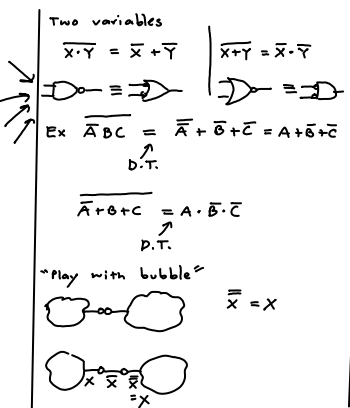 Two variables
X̅·̅Y̅ = X̅ + Y̅
X̅+̅Y̅ = X̅·Y̅
≡
≡
Ex A̿B̅C̅ = A̿ + B̅ + C̅ = A+B̅+C̅
D.T.
A̿+̅B̅+̅C̅ = A·B̅·C̅
D.T.
"Play with bubble"
X̿ = X
X X̅ X̿
=X